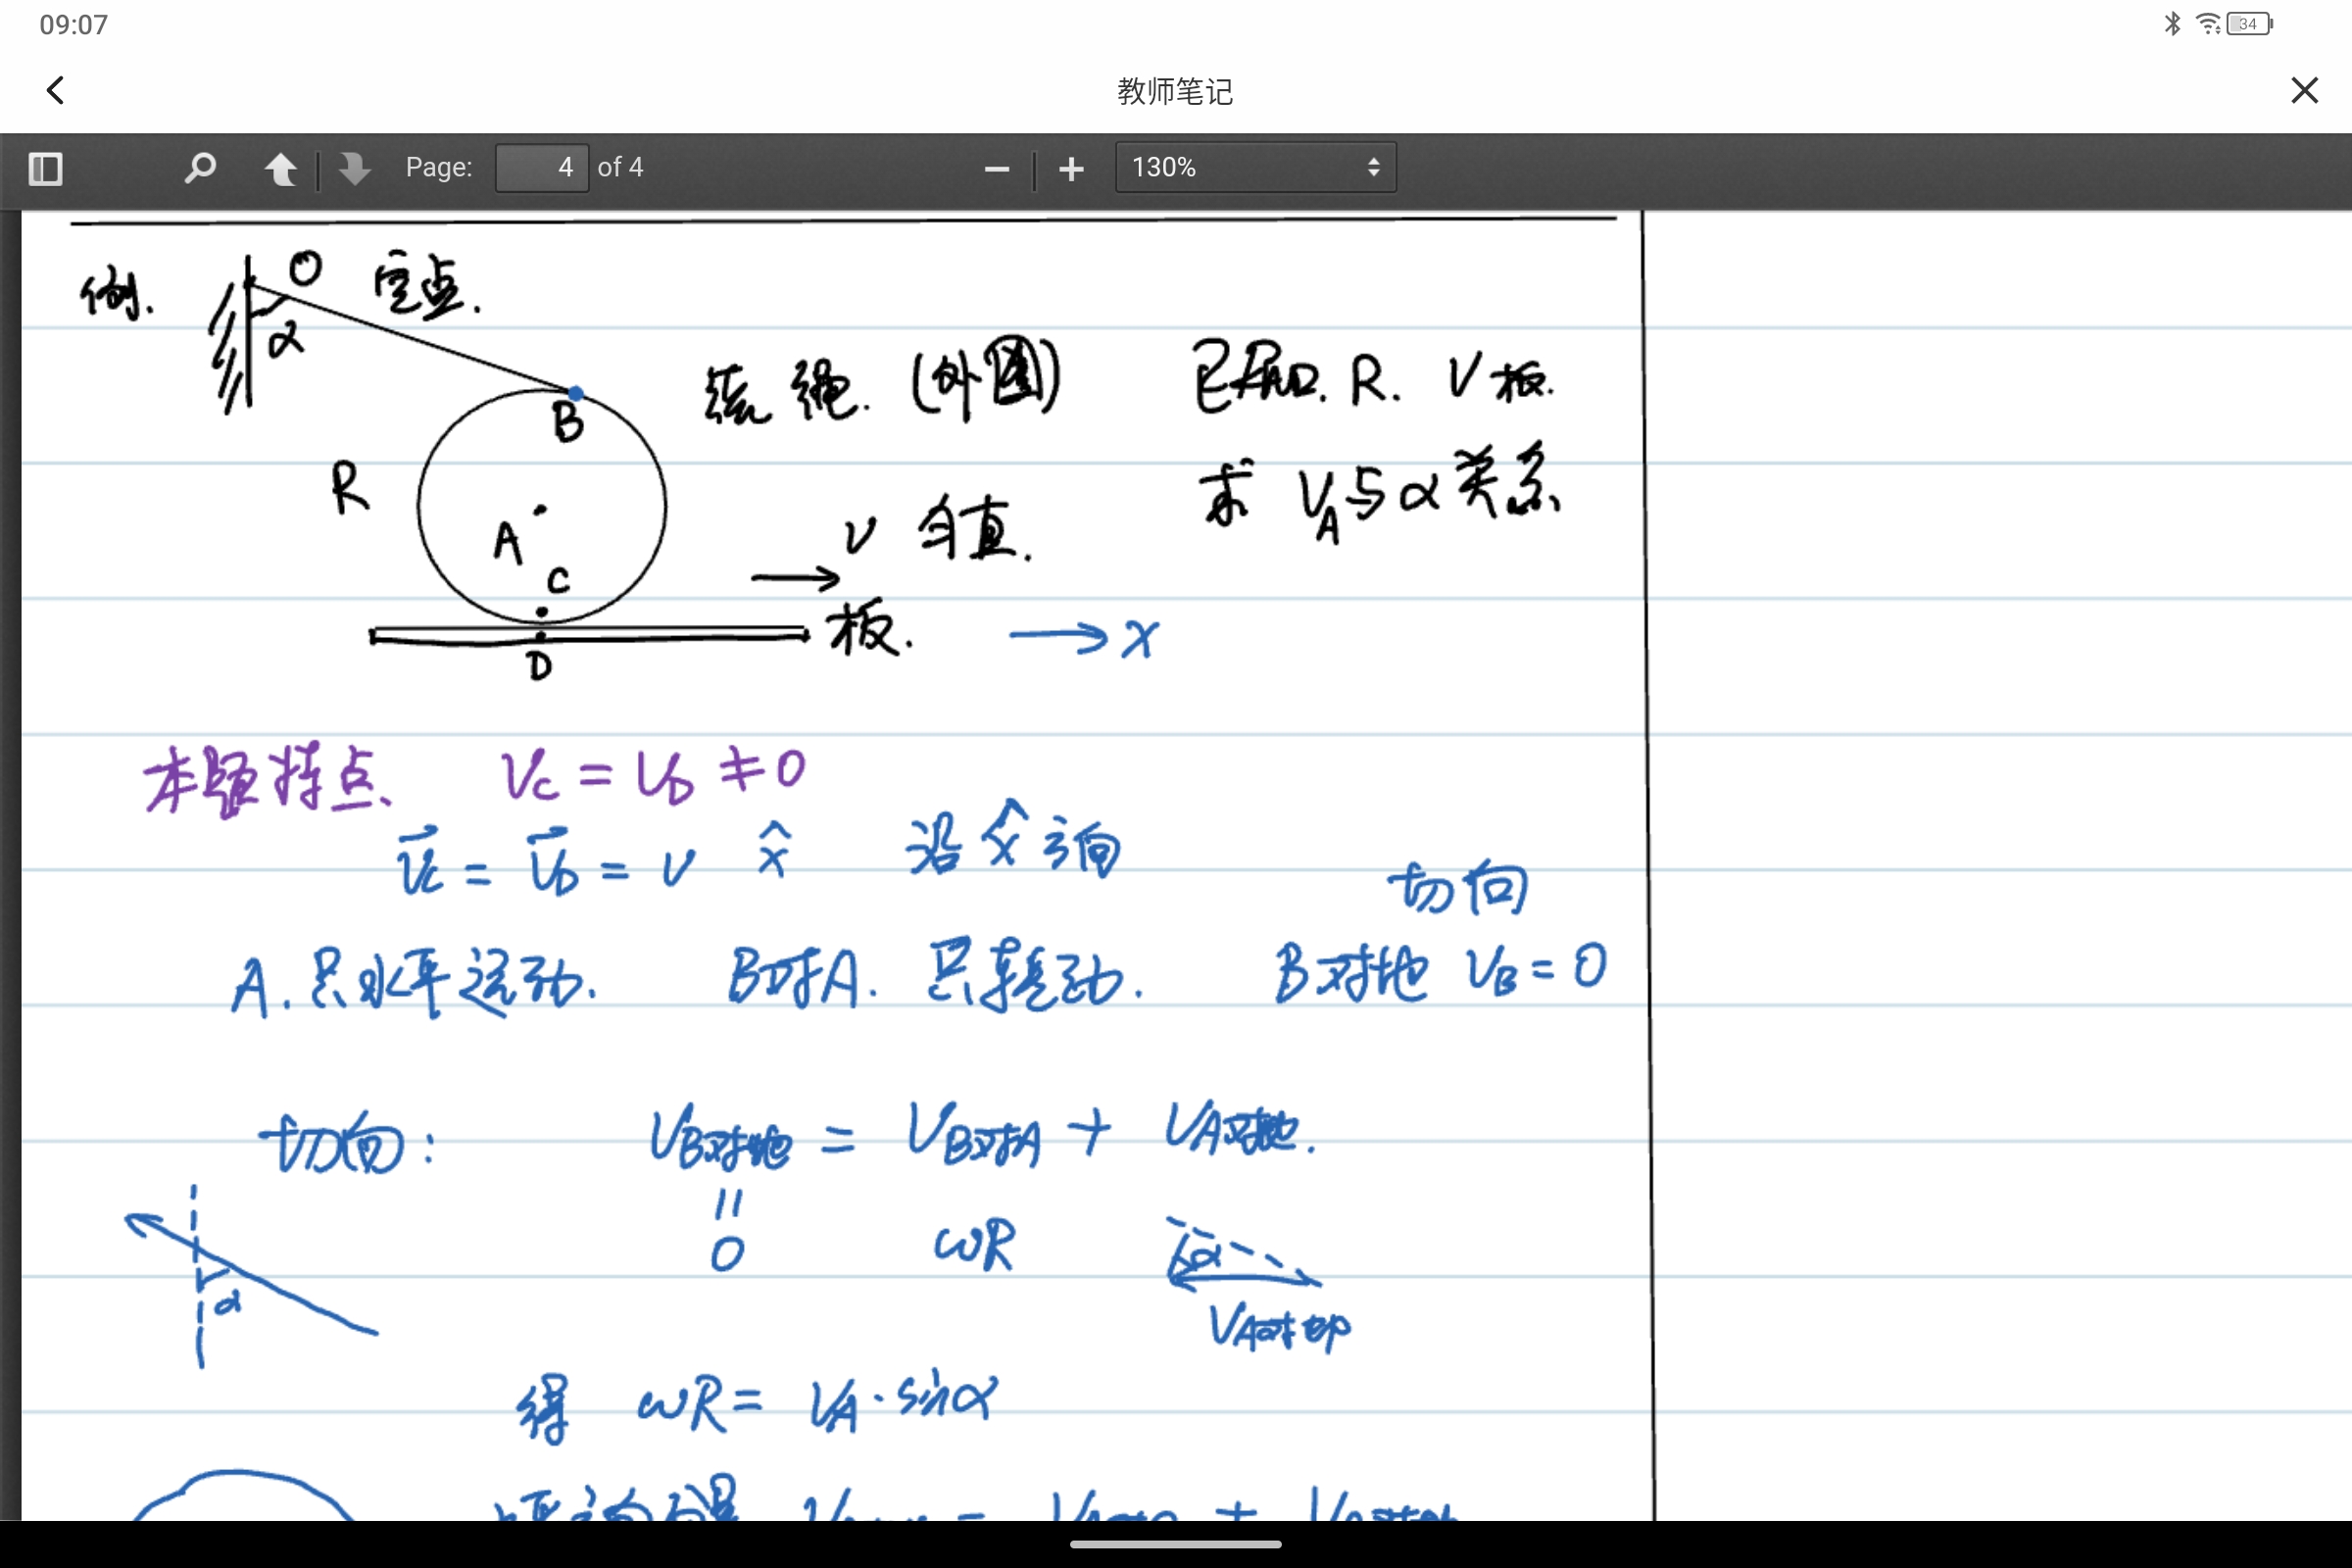 09:07
34
教师笔记
Page: 4 of 4
130%
例. O 定点.
α
B 绕绳. (外围) 已知. R. V板.
R 求 VA与α关系
A v 匀直.
C
板. → x
D
本题特点、 Vc = VD ≠ 0
V⃗c = V⃗D = v x̂ 沿 x̂ 方向
切向
A. 只水平运动. B对A. 只转动. B对地 VB = 0
切向: VB对地 = VB对A + VA对地.
α
0 ωR α
VA对地
得 ωR = VA·sinα